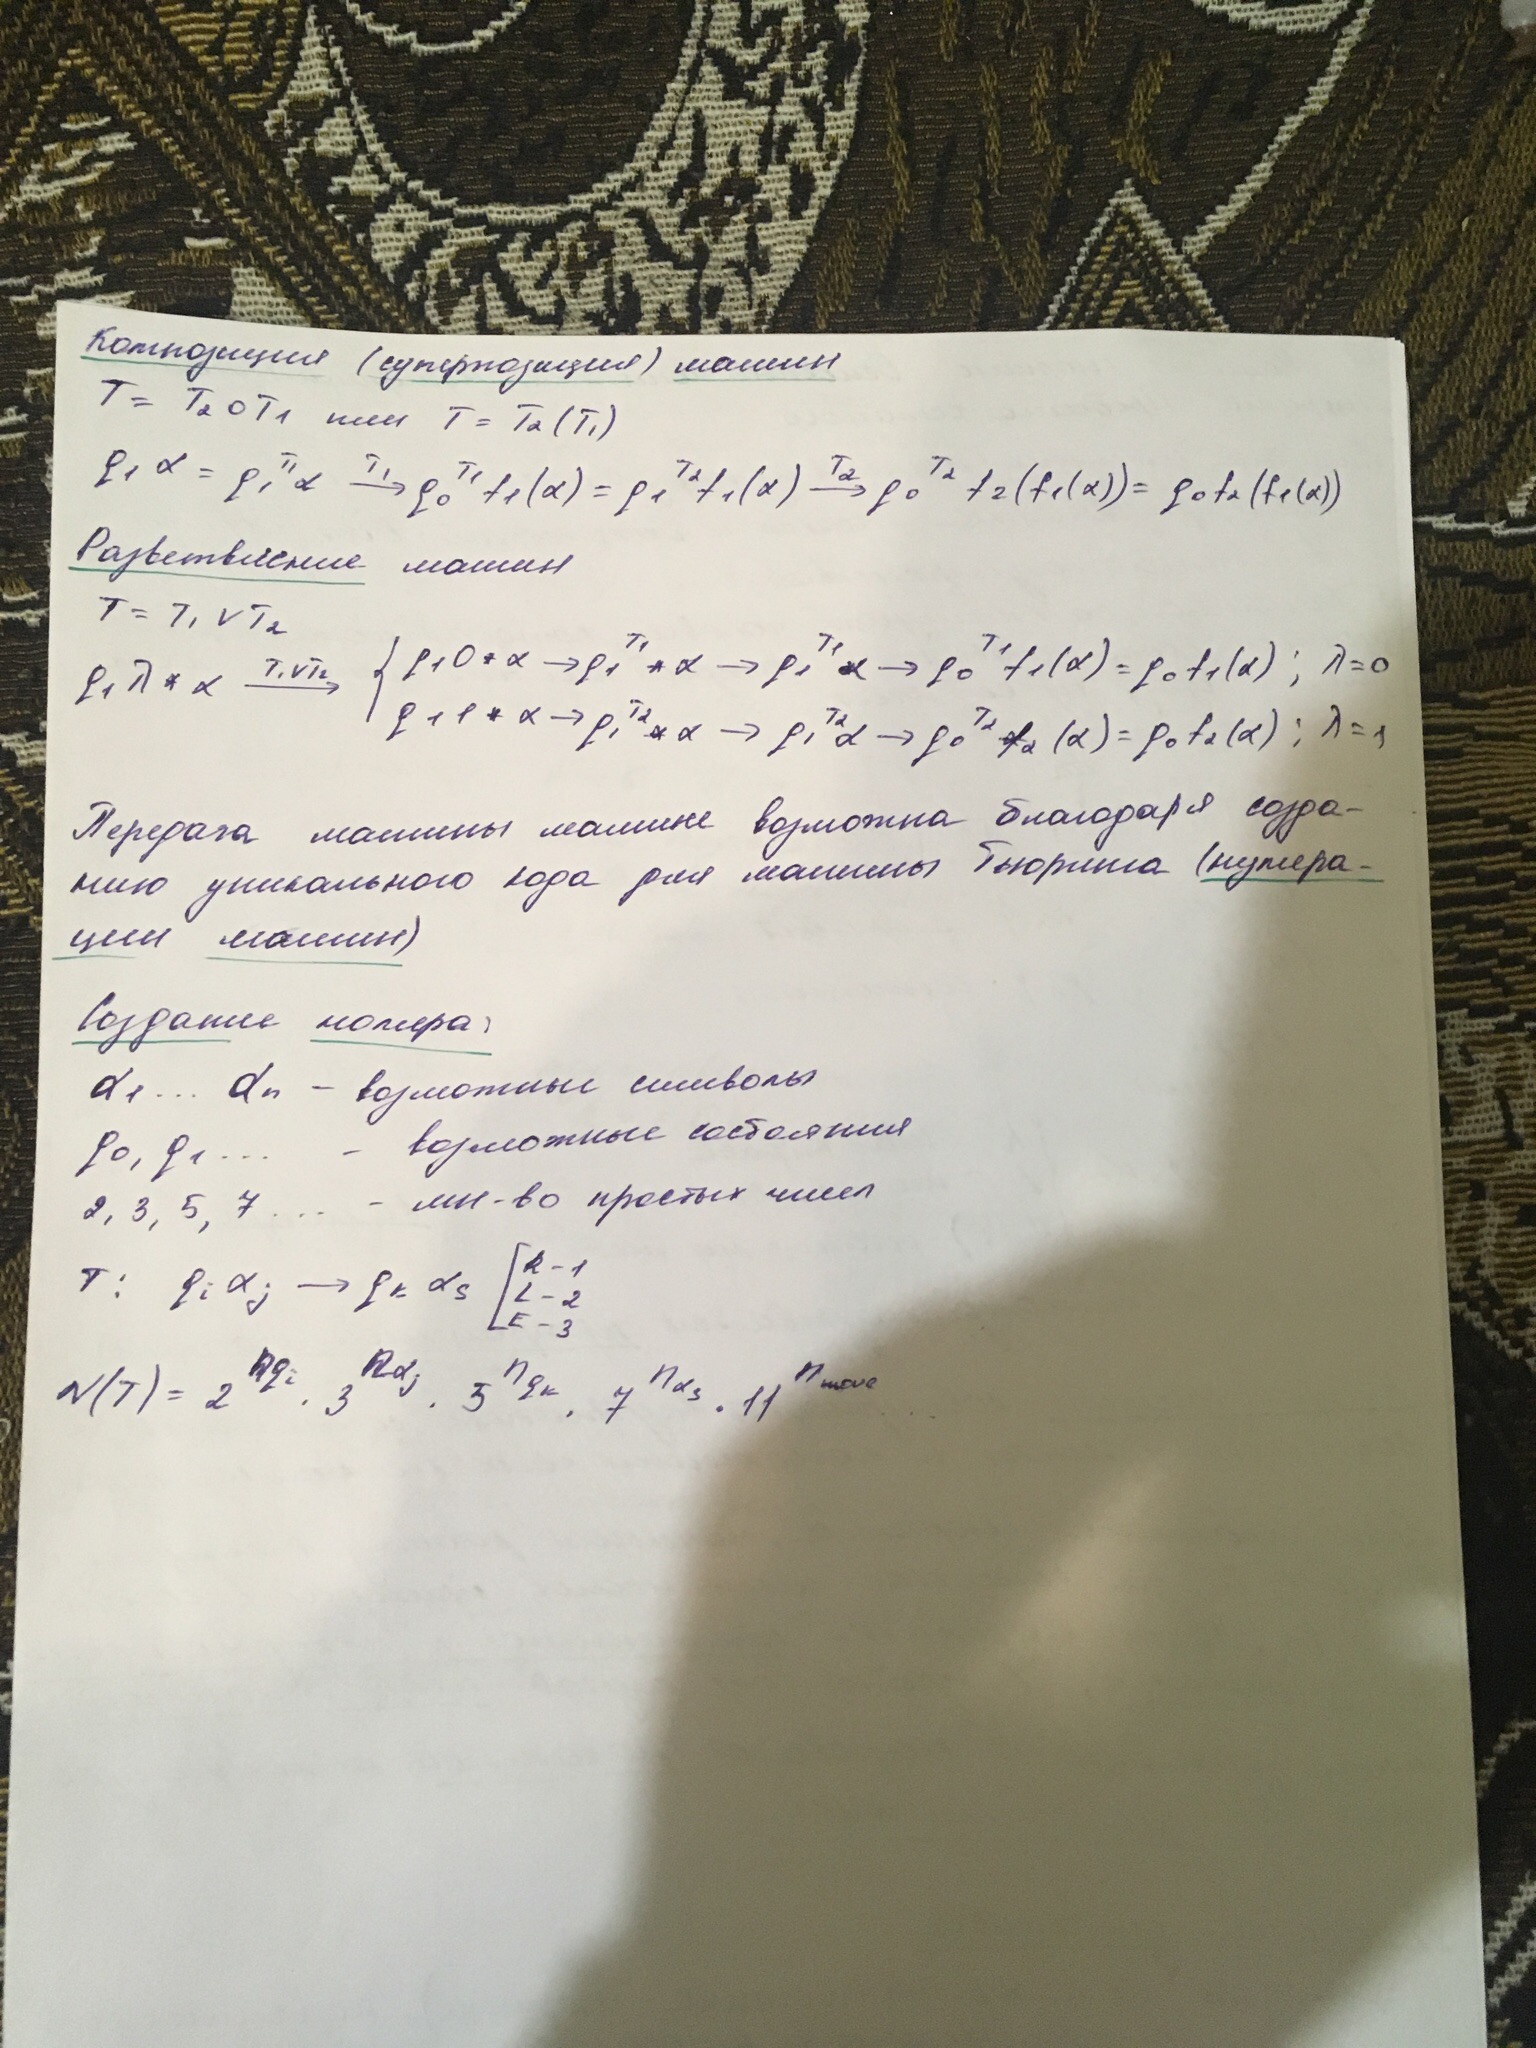 Композиция (суперпозиция) машин
T = T₂ ∘ T₁ или T = T₂(T₁)
q₁α = q₁^T₁ α →^T₁ q₀^T₁ f₁(α) = q₁^T₂ f₁(α) →^T₂ q₀^T₂ f₂(f₁(α)) = q₀f₂(f₁(α))
Разветвление машин
T = T₁ ∨ T₂
q₁λ*α →^T₁∨T₂ { q₁0*α → q₁^T₁ *α → q₁^T₁ α → q₀^T₁ f₁(α) = q₀f₁(α); λ=0
q₁1*α → q₁^T₂ *α → q₁^T₂ α → q₀^T₂ f₂(α) = q₀f₂(α); λ=1
Передача машины машине возможна благодаря созда-
нию уникального кода для машины Тьюринга (нумера-
ции машин)
Создание номера:
α₁ ... αₙ - возможные символы
q₀, q₁ ... - возможные состояния
2, 3, 5, 7 ... - мн-во простых чисел
T: qᵢ αⱼ → qₖ αₛ [ R - 1
L - 2
E - 3
N(T) = 2^n_qᵢ · 3^n_αⱼ · 5^n_qₖ · 7^n_αₛ · 11^n_move ...